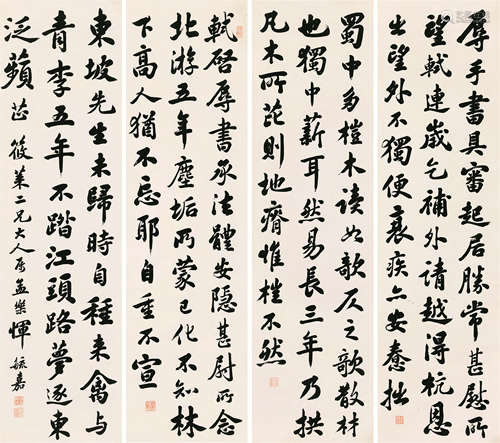 辱手書具審起居勝常甚慰所
望軾連歲乞補外請越得杭恩
出望外不獨便衰疾亦安惷拙
蜀中多榿木读如歌仄之歌散材
也獨中薪耳然易長三年乃拱
凡木所芘則地瘠惟榿不然
軾啓辱書承法體安隱甚尉所念
北游五年塵垢所蒙已化不知林
下高人猶不忘耶自重不宣
東坡先生未歸時自種来禽与
青李五年不踏江頭路夢逐東
泛蘋芷 筱葉二兄大人属孟樂惲毓嘉